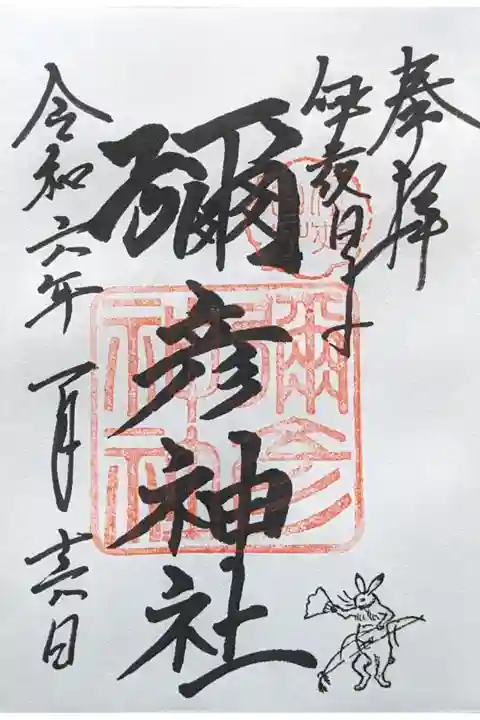 奉拝
伊夜日子
彌彦神社
令和六年一月十六日
彌彦
神社